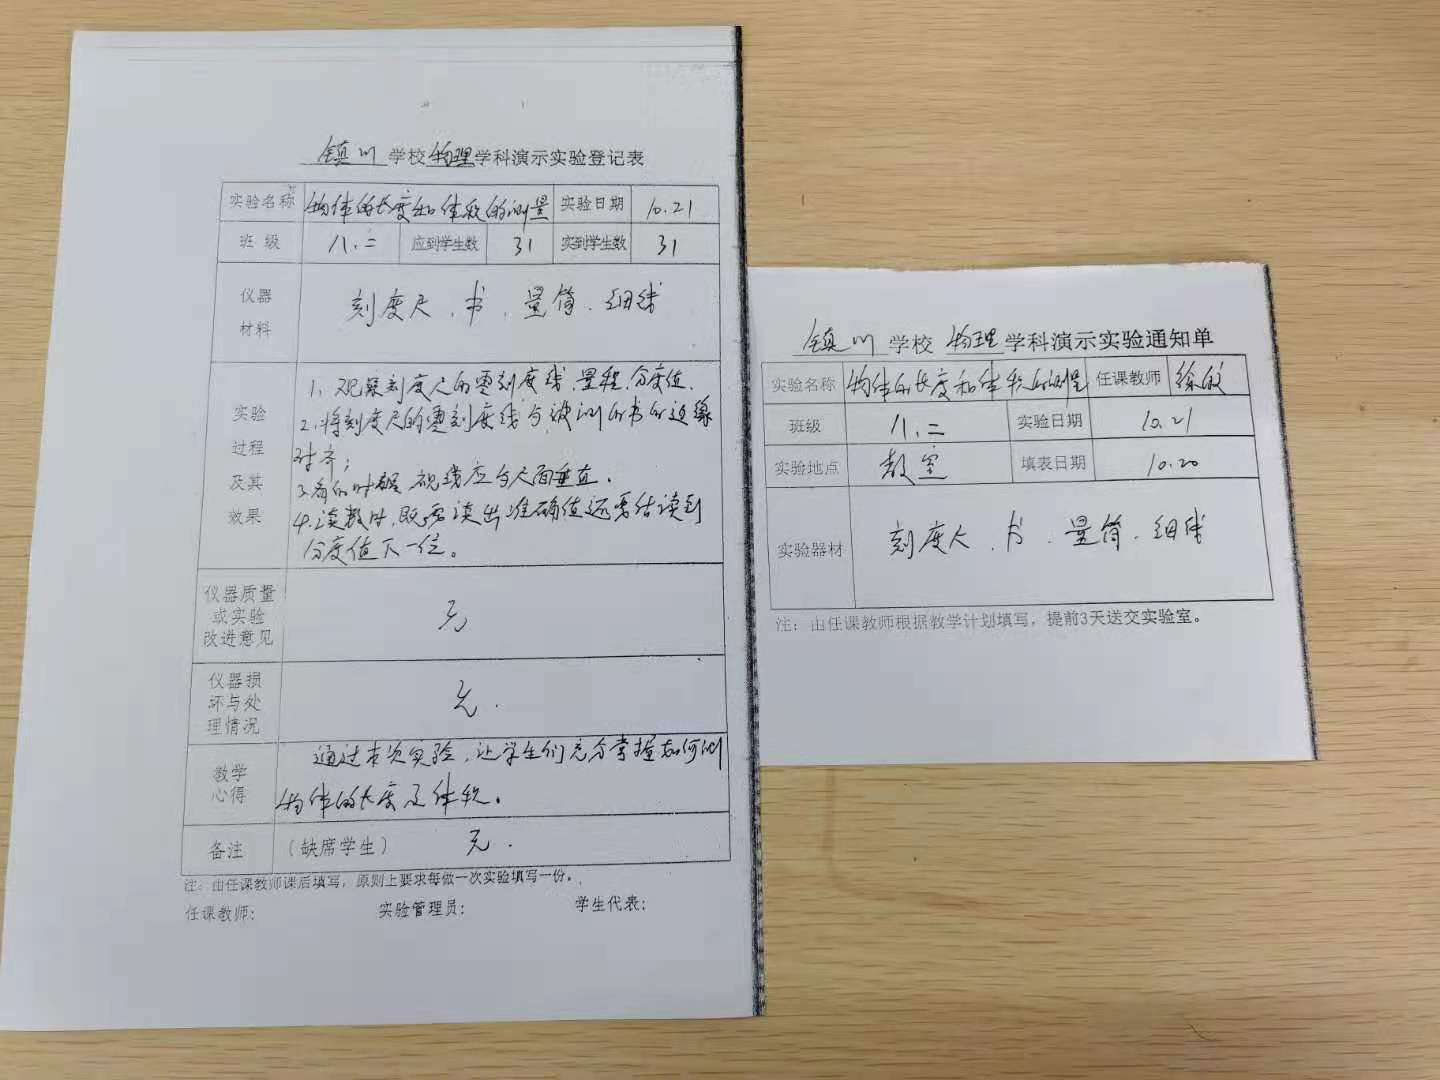 镇川学校物理学科演示实验登记表
实验名称 物体的长度和体积的测量 实验日期 10.21
班 级 八.二 应到学生数 31 实到学生数 31
仪器
材料
刻度尺、书、量筒、细线
实验
过程
及其
效果
1、观察刻度尺的零刻度线、量程、分度值.
2、将刻度尺的零刻度线与被测的书的边缘
对齐;
视线应与尺面垂直.
4.读数时,既要读出准确值还要估读到
分度值下一位。
仪器质量
或实验
改进意见
无
仪器损
坏与处
理情况
无.
教学
心得
通过本次实验,让学生们充分掌握如何测
物体的长度及体积。
备注 (缺席学生) 无.
注:由任课教师课后填写,原则上要求每做一次实验填写一份。
任课教师: 实验管理员: 学生代表:
镇川学校 物理学科演示实验通知单
实验名称 物体的长度和体积的测量 任课教师 徐
班级 八.二 实验日期 10.21
实验地点 教室 填表日期 10.20
实验器材 刻度尺、书、量筒、细线
注:由任课教师根据教学计划填写,提前3天送交实验室。